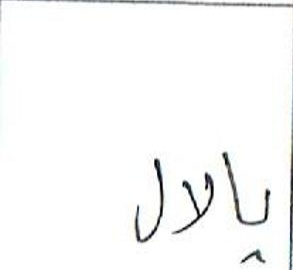 يالال